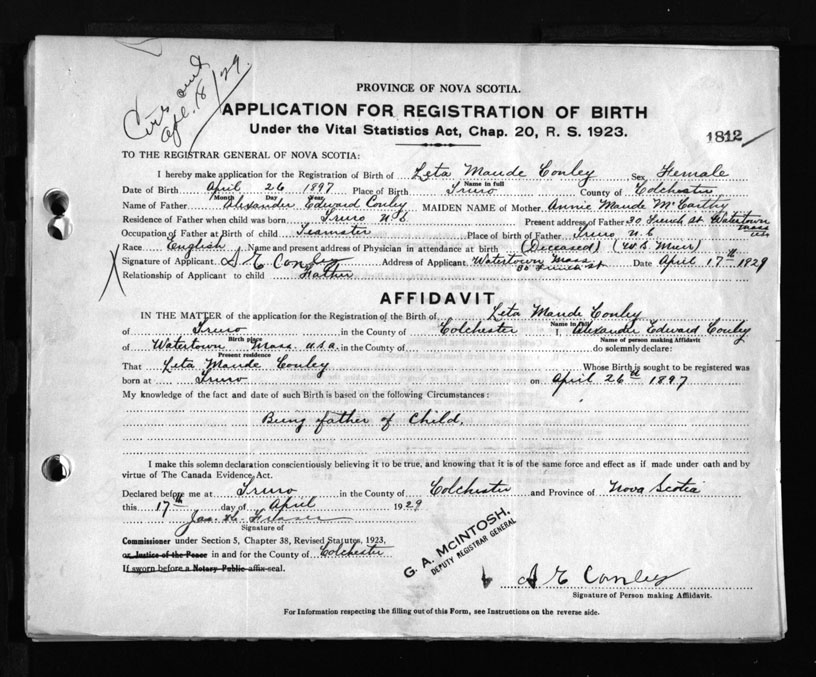 Apl. 18/29.
PROVINCE OF NOVA SCOTIA.
APPLICATION FOR REGISTRATION OF BIRTH
Under the Vital Statistics Act, Chap. 20, R. S. 1923.
1812
TO THE REGISTRAR GENERAL OF NOVA SCOTIA:
I hereby make application for the Registration of Birth of Leta Maude Conley Sex Female
Name in full
Date of Birth April 26 1897 Place of Birth Truro County of Colchester
Month Day Year
Name of Father Alexander Edward Conley MAIDEN NAME of Mother Annie Maude McCarthy
Residence of Father when child was born Truro N.S. Present address of Father 30 French St Watertown Mass
Occupation of Father at Birth of child Teamster Place of birth of Father Truro N.S.
Race English Name and present address of Physician in attendance at birth (Deceased) (W.S. Muir)
Signature of Applicant A E Conley Address of Applicant Watertown Mass. 30 French St Date April 17th 1929
Relationship of Applicant to child Father
AFFIDAVIT
IN THE MATTER of the application for the Registration of the Birth of Leta Maude Conley
Name in full
of Truro in the County of Colchester I, Alexander Edward Conley
Birth place Name of person making Affidavit
of Watertown Mass U.S.A. in the County of do solemnly declare:
Present residence
That Leta Maude Conley Whose Birth is sought to be registered was
born at Truro on April 26th 1897
My knowledge of the fact and date of such Birth is based on the following Circumstances:
Being father of Child.
I make this solemn declaration conscientiously believing it to be true, and knowing that it is of the same force and effect as if made under oath and by
virtue of The Canada Evidence Act.
Declared before me at Truro in the County of Colchester and Province of Nova Scotia
this 17th day of April 1929
Signature of
Commissioner under Section 5, Chapter 38, Revised Statutes, 1923,
or Justice of the Peace in and for the County of Colchester
If sworn before a Notary Public affix seal.
G. A. McINTOSH,
DEPUTY REGISTRAR GENERAL
A E Conley
Signature of Person making Affidavit.
For Information respecting the filling out of this Form, see Instructions on the reverse side.